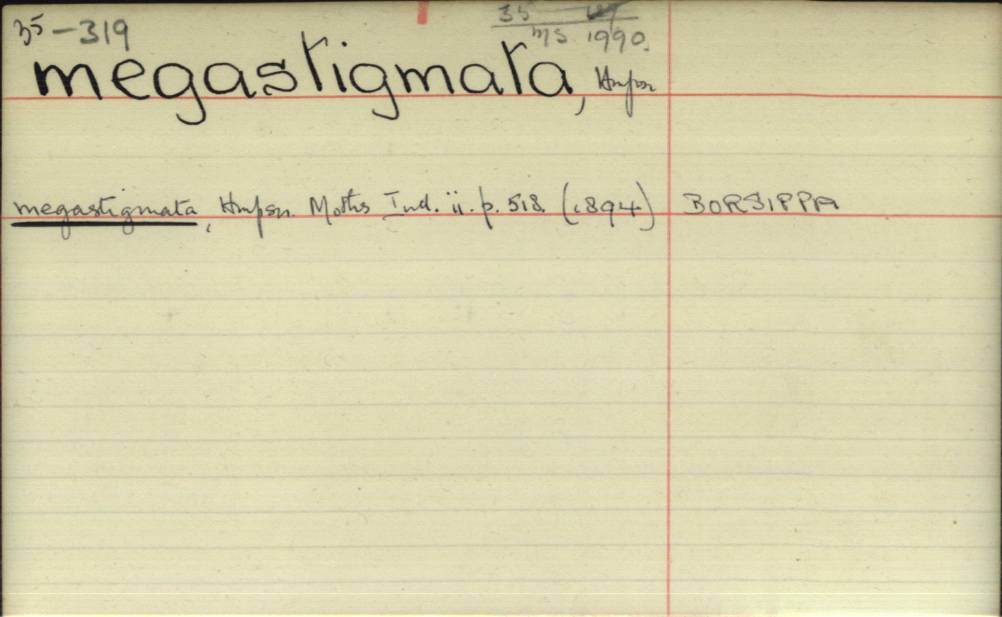 35-319
35
ms 1990.
megastigmata, Hmpsn
megastigmata, Hmpsn. Moths Ind. ii. p. 518. (1894) BORSIPPA